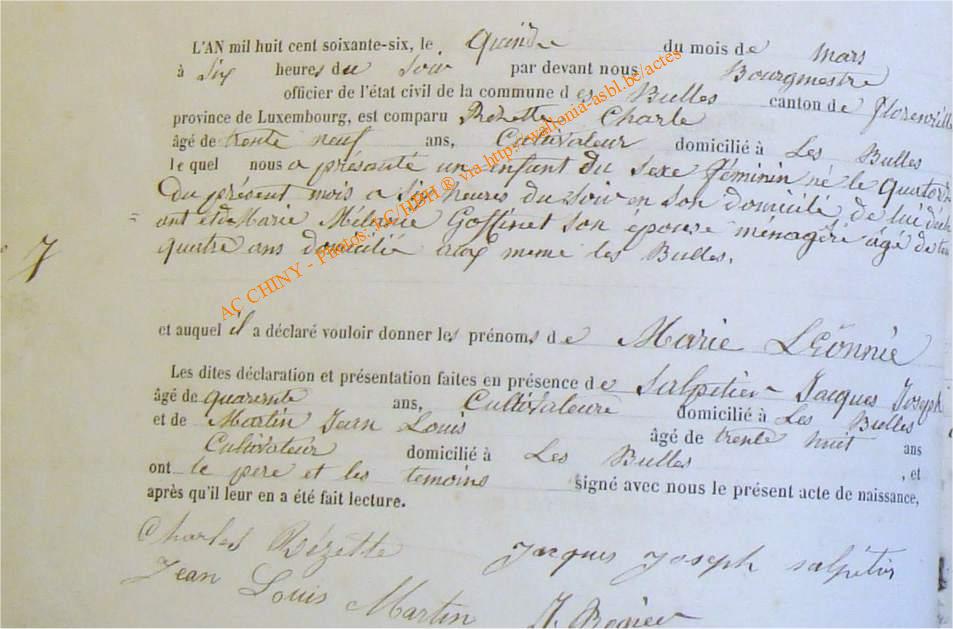 L'AN mil huit cent soixante-six, le quinze du mois de mars
à six heures du soir par devant nous Bourgmestre
officier de l'état civil de la commune des Bulles canton de Florenville
province de Luxembourg, est comparu Rézette Charle
âgé de trente neuf ans, Cultivateur domicilié à Les Bulles
lequel nous a présanté un enfant du sexe féminin né le quatorze
du présent mois a six heures du soir en son domicile de lui
Marie Mélanie Goffinet son épouse ménagère âgé de
quatre ans domicilié aux meme les Bulles.
7
et auquel il a déclaré vouloir donner les prénoms de Marie Léonnie
Les dites déclaration et présentation faites en présence de Salpetier Jacques Joseph
âgé de quarente ans, Cultivateure domicilié à Les Bulles
et de Martin Jean Louis âgé de trente huit ans
Cultivateur domicilié à Les Bulles , et
ont le pere et les temoins signé avec nous le présent acte de naissance,
après qu'il leur en a été fait lecture.
Charles Rézette Jacques Joseph salpétier
Jean Louis Martin
AC CHINY - Photos: AC/HBH ® via http://wallonia-asbl.be/actes